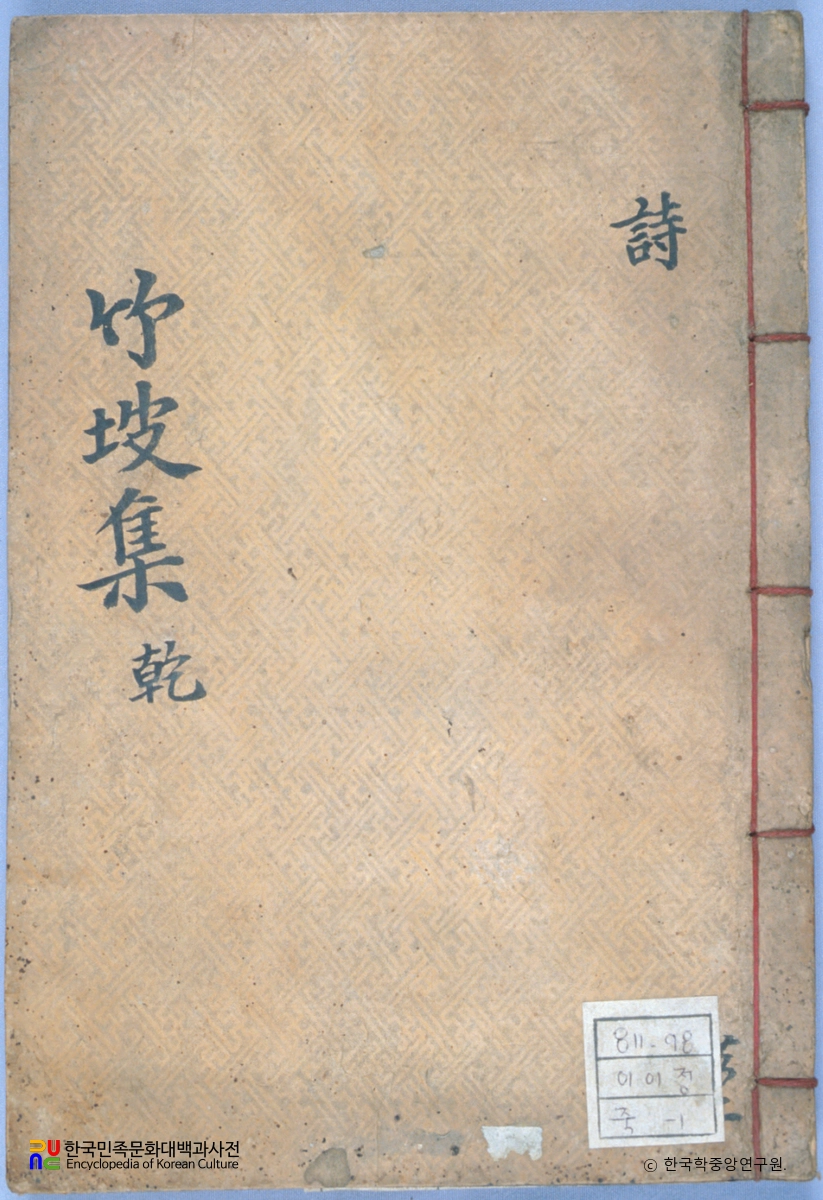 詩
竹坡集 乾
811.98
이이정
죽 -1
한국민족문화대백과사전
Encyclopedia of Korean Culture
© 한국학중앙연구원.